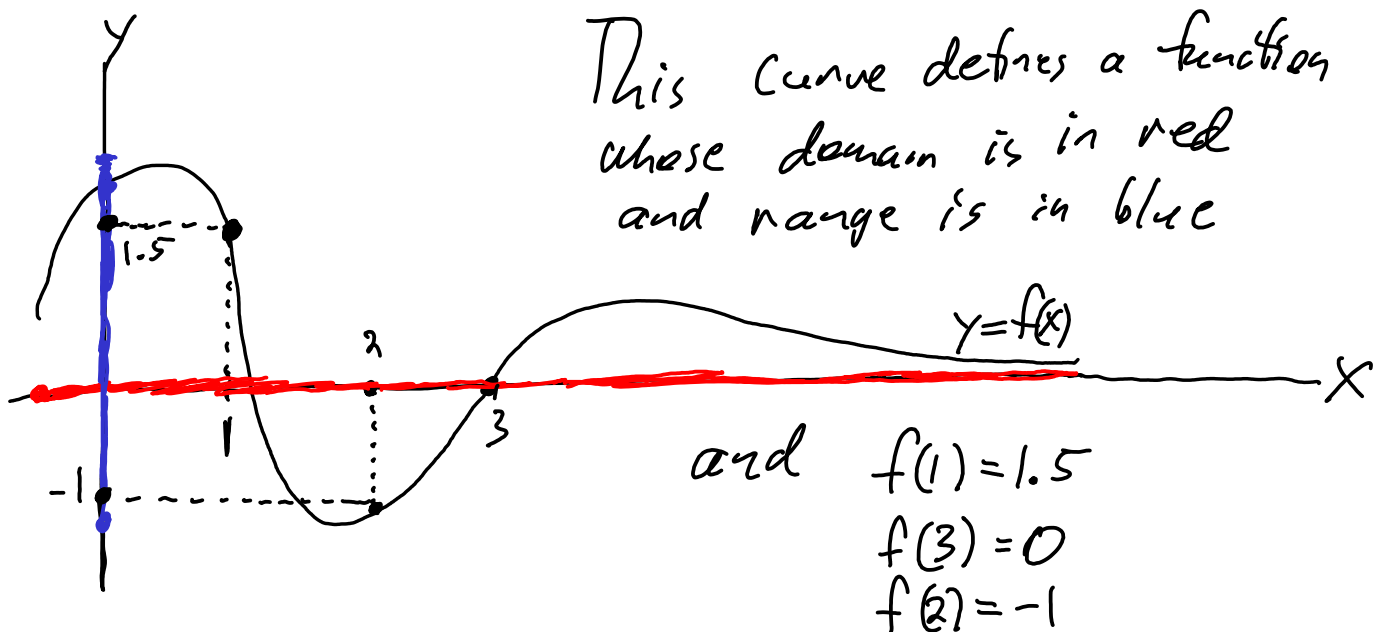 Y
This curve defines a function
whose domain is in red
and range is in blue
1.5
y=f(x)
2
X
1
3
-1
and f(1)=1.5
f(3)=0
f(2)=-1